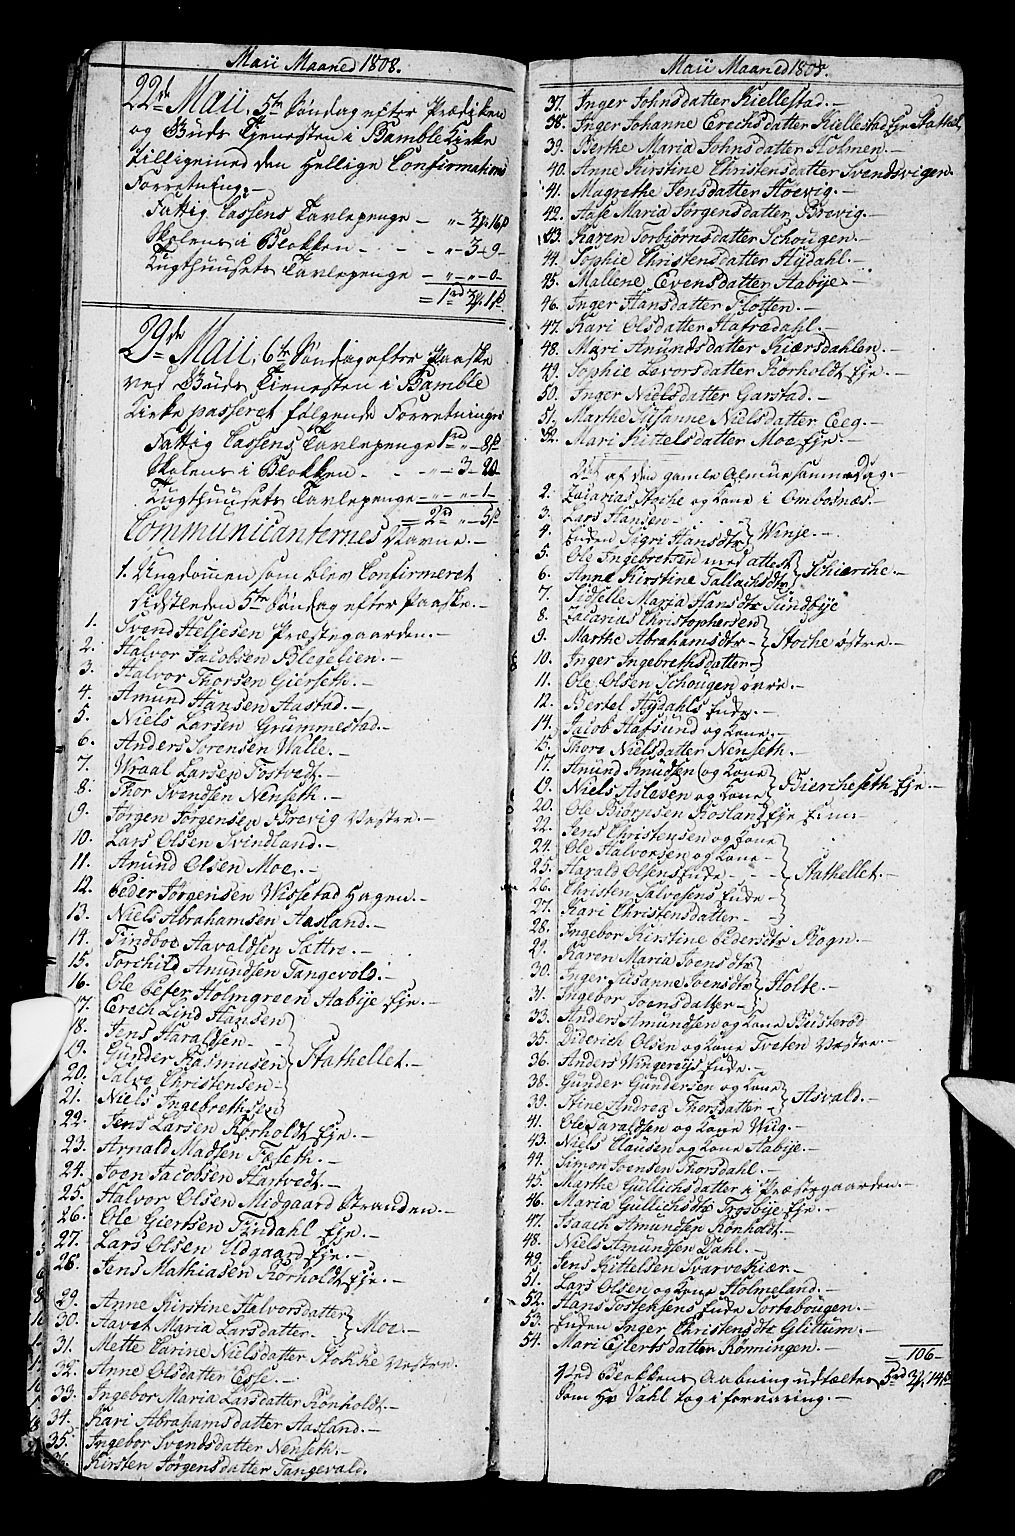 Maii Maaned 1808.
22de Maii, 5te Søndag efter Prædiken
og Guds Tienesten i Bamble Kirke
tilligemed den Hellige Confirmations
Forretning.-
Fattig Cassens Tavlepenge - " 3 16
Skolens i Blokken - - " - 3 - 9 -
Tugthuusets Tavlepenge - " - " - 0 -
= 1rd 3 1
29de Maii, 6te Søndag efter Paaske
ved Guds Tienesten i Bamble
Kirke passeret følgende Forretninger
Fattig Cassens Tavlepenge 1rd " - 8
Skolens i Blokken - - " - 3 - 20
Tugthuusets Tavlepenge - " - " - 1 -
= 2rd " - 5
Communicanternes Navne.-
1. Ungdommen som blev Confirmeret
sidstleden 5te Søndag efter Paaske.-
1. Svend Heljesen Præstegaarden.-
2. Halvor Jacobsen Blegelien.-
3. Halvor Thorsen Gierseth.-
4. Amund Hansen Aastad.-
5. Niels Larsen Grummestad.-
6. Anders Sorensen Walle.-
7. Wraal Larsen Tostvedt.-
8. Thor Svendsen Nenseth.-
9. Jørgen Jørgensen Brevig Vestre.-
10. Lars Olsen Svindland.-
11. Anund Olsen Moe.-
12. Peder Jørgensen Wissestad Hagen.-
13. Niels Abrahamsen Aasland.-
14. Findboe Aavaldsen Sattre.-
15. Torchild Amundsen Tangevold.-
16. Ole Peter Holmgreen Aabije Eje.-
17. Erech Lind Hansen
18. Jens Haraldsen -
19. Gunder Rasmusen Stathellet.-
20. Salve Christensen -
21. Niels Ingebrethsen
22. Jens Larsen Rørholdt Eje.-
23. Arnald Madsen Fæseth.-
24. Joen Jacobsen Hartvedt.-
25. Halvor Olsen Midgaard Stranden.-
26. Ole Giertsen Findahl Eje.-
27. Lars Olsen Udgaard Eje.-
28. Jens Mathiasen Rørholdt Eje.-
29. Anne Kirstine Halvorsdatter
30. Aavet Maria Larsdatter.- Moe.-
31. Mette Carine Nielsdatter Stokke Vestre
32. Anne Olsdatter Esse.-
33. Ingebor Maria Larsdatter Rønholdt.-
34. Kari Abrahamsdatter Aasland.-
35. Ingebor Svendsdatter Nenseth.-
36. Kirsten Jørgensdatter Tangevald.
Maii Maaned 1808.
37. Inger Johnsdatter Kiellestad.-
38. Inger Johanne Erechsdatter Kiellestad Eje Stathel
39. Berthe Maria Johnsdatter Holmen.-
40. Anne Kirstine Christensdatter Svendsvigen-
41. Magrethe Jensdatter Hoevig.-
42. Aase Maria Jørgensdatter Brevig.-
43. Karen Torbjørnsdatter Schougen.-
44. Sophie Christensdatter Hydahl.-
45. Mallene Evensdatter Aabije.-
46. Inger Hansdatter Flotten.-
47. Kari Olsdatter Hafredahl.-
48. Mari Anundsdatter Kiærsdahlen.-
49. Sophie Levorsdatter Rørholdt Eje.-
50. Inger Nielsdatter Garstad.-
51. Marthe Susanne Nielsdatter Eeg.-
52. Mari Kittelsdatter Moe Eje.-
2det af den gamle Almue samme Dag.-
2. Zacarias Stoche og Kone i Ombosnæs.-
3. Lars Hansen -
4. Enken Sigri Hansdtr Winje.-
5. Ole Ingebretsen med attest
6. Anne Kirstine Tallachsdtr Schierche.-
7. Sidselle Maria Hansdtr Sundbije
8. Zacarias Christophersen
9. Marthe Abrahamsdtr - Stoche østre.-
10. Inger Ingebrethsdatter
11. Ole Olsen Schougen øvre.-
12. Bertel Hydahls Enke.-
14. Jacob Hafsund og Kone.-
15. Thore Nielsdatter Nenseth.-
17. Anund Knudsen og Kone
19. Niels Aslesen og Kone Biercheseth Eje.-
20. Ole Biørnsen Rosland Eje
22. Jens Christensen og Kone
24. Ole Halvorsen og Kone -
25. Harald Olsens Enke - - Stathellet.-
26. Christen Salvesens Enke -
27. Kari Christensdatter -
28. Ingebor Kirstine Pedersdtr Rogn.-
29. Karen Maria Joensdtr
30. Inger Susanne Joensdtr Holte.-
31. Ingebor Joensdatter -
33. Anders Amundsen og Kone Busterød
35. Diderich Olsen og Kone Tveten Vestre.-
36. Anders Wingereijs Enke.-
38. Gunder Gundersen og Kone
39. Stine Andrea Thorsdatter - Asvald.-
41. Ole Taraldsen og Kone Wiig.-
43. Niels Clausen og Kone Aabije.-
44. Simon Joensen Thorsdahl.-
45. Marthe Gullichsdatter i Præstegaarden.-
46. Maria Gullichsdtr Trosbije Eje.-
47. Isaach Amundsen Rønholt.-
48. Niels Amundsen Dahl.-
49. Jens Kittelsen Svarvekiær.-
51. Lars Olsen og Kone Holmeland.-
52. Hans Tostensens Enke Sortebougen.-
53. Enken Inger Christensdtr Glittum.-
54. Mari Ejlertsdatter Rønningen.-
= 106 -
Ved Blokkens Aabning udtaltes 5rd 3 14
som Hr Vahl tog i forvaring.-